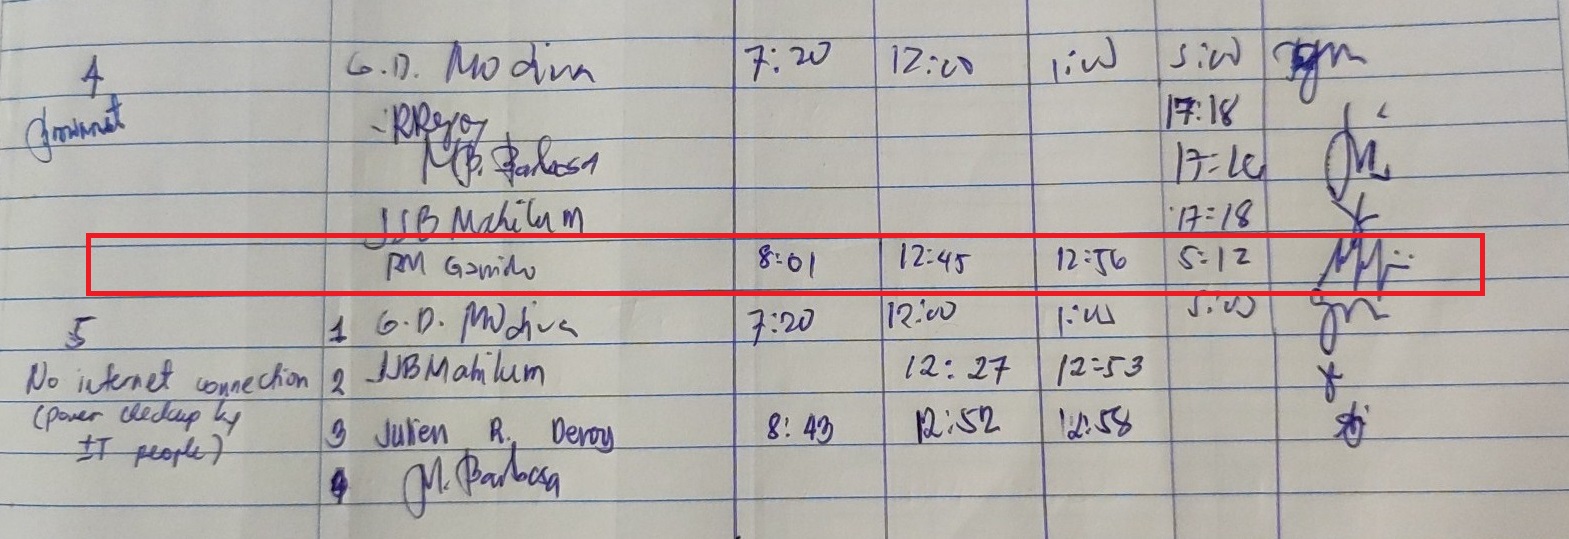 4 G.D. Modina 7:20 12:00 1:00 5:00
17:18
M.B. Barbosa
JJB Mahilum 17:18
RM Garrido 8:01 12:45 12:56 5:12
5 1 G.D. Modina 7:20 12:00 1:00 5:00
No internet connection 2 JJB Mahilum 12:27 12:53
(power checkup by
IT people) 3 Julien R. Deroy 8:43 12:52 12:58
4 M. Barbosa